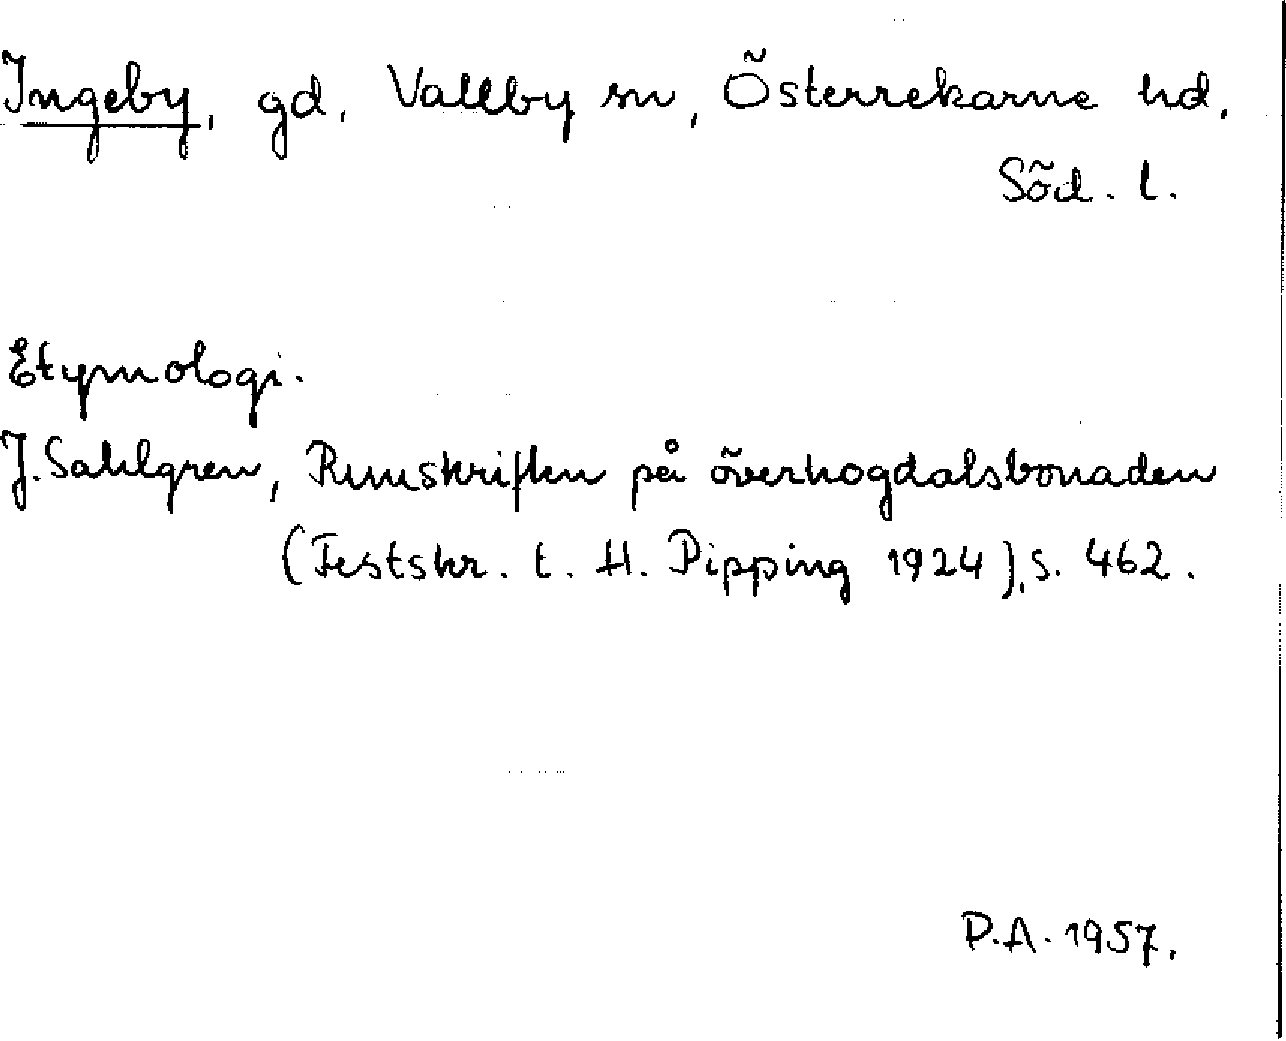 Ingeby, gd, Vallby sn, Österrekarne hd,
Söd. l.
Etymologi.
J. Sahlgren, Runskriften på överhogdalsbonaden
(Festskr. t. H. Pipping 1924), s. 462.
P.A. 1957.